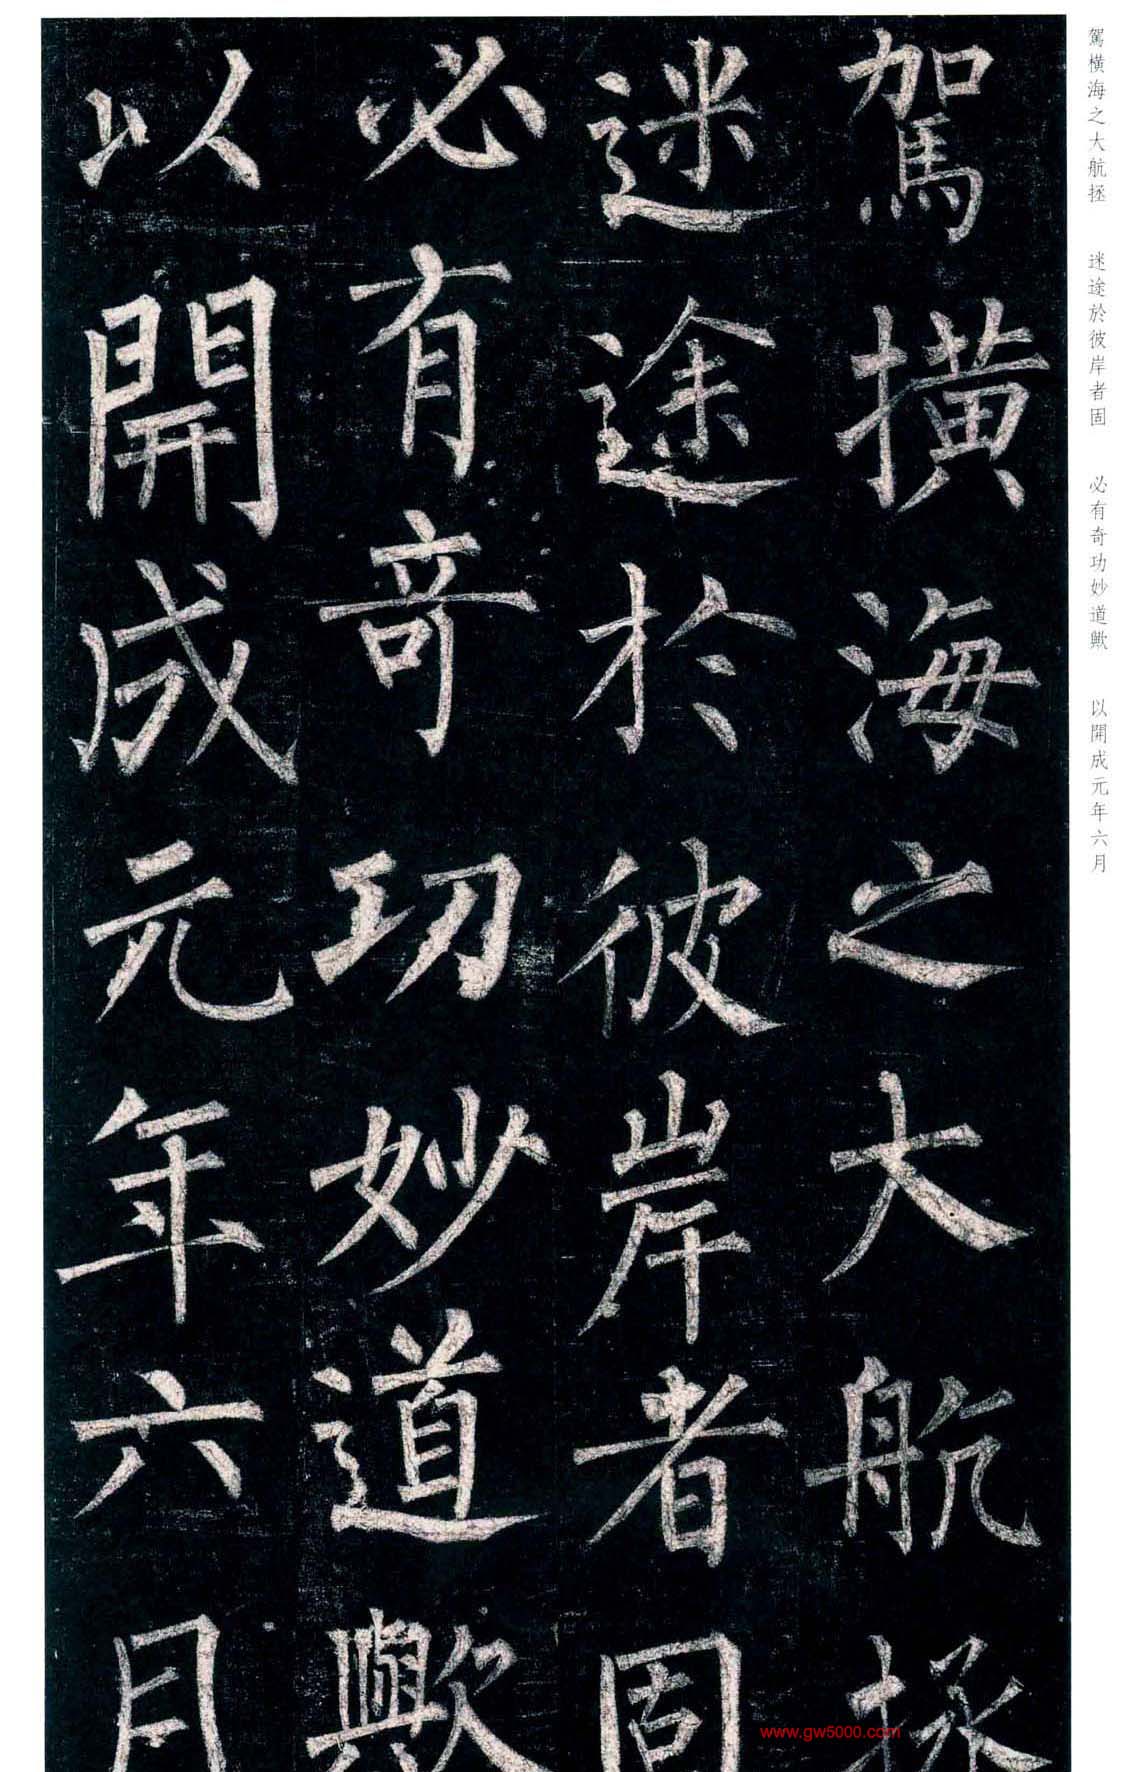 駕橫海之大航拯
迷途於彼岸者固
必有奇功妙道歟
以開成元年六月
駕橫海之大航拯 迷途於彼岸者固 必有奇功妙道歟 以開成元年六月
www.gw5000.com